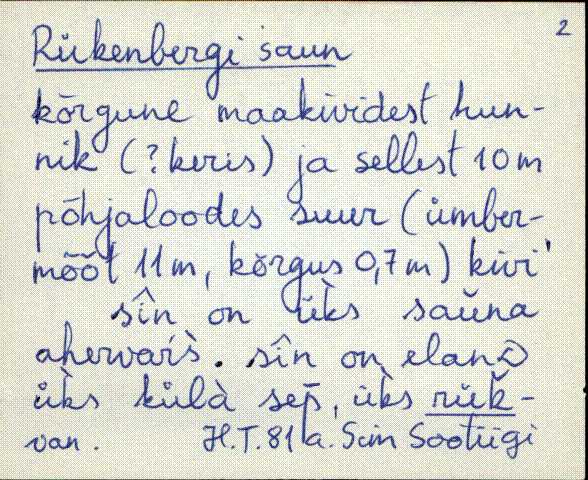 2
Rükenbergi saun
kõrgune maakividest hun-
nik (?keris) ja sellest 10m
põhjaloodes suur (ümber-
mõõt 11m, kõrgus 0,7m) kivi'
sîn on üks saŭna
ahervaŕs̀. sîn on elanD
üks külà sep̄, üks rük̆-
van. H.T. 81 a. Siim Sootiigi